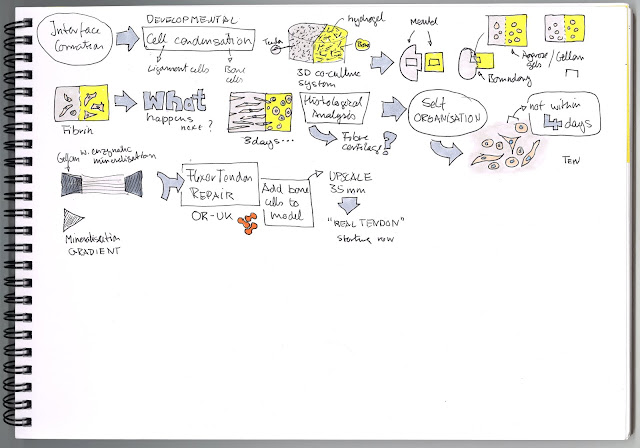 Interface
formation
DEVELOPMENTAL
Cell condensation
Ligament cells
Bone
cells
hydrogel
Tendon
Bone
3D co-culture
system
Mould
Boundary
Agarose / Gellan
gels
Fibrin
What
happens
next?
3 days...
Histological
Analysis
Fibre
cartilage?
Self
ORGANISATION
not within
4 days
TEN
w. enzymatic
mineralisation
Mineralisation
GRADIENT
Flexor Tendon
REPAIR
OR-UK
Add bone
cells to
model
UPSCALE
35mm
"REAL TENDON"
starting now